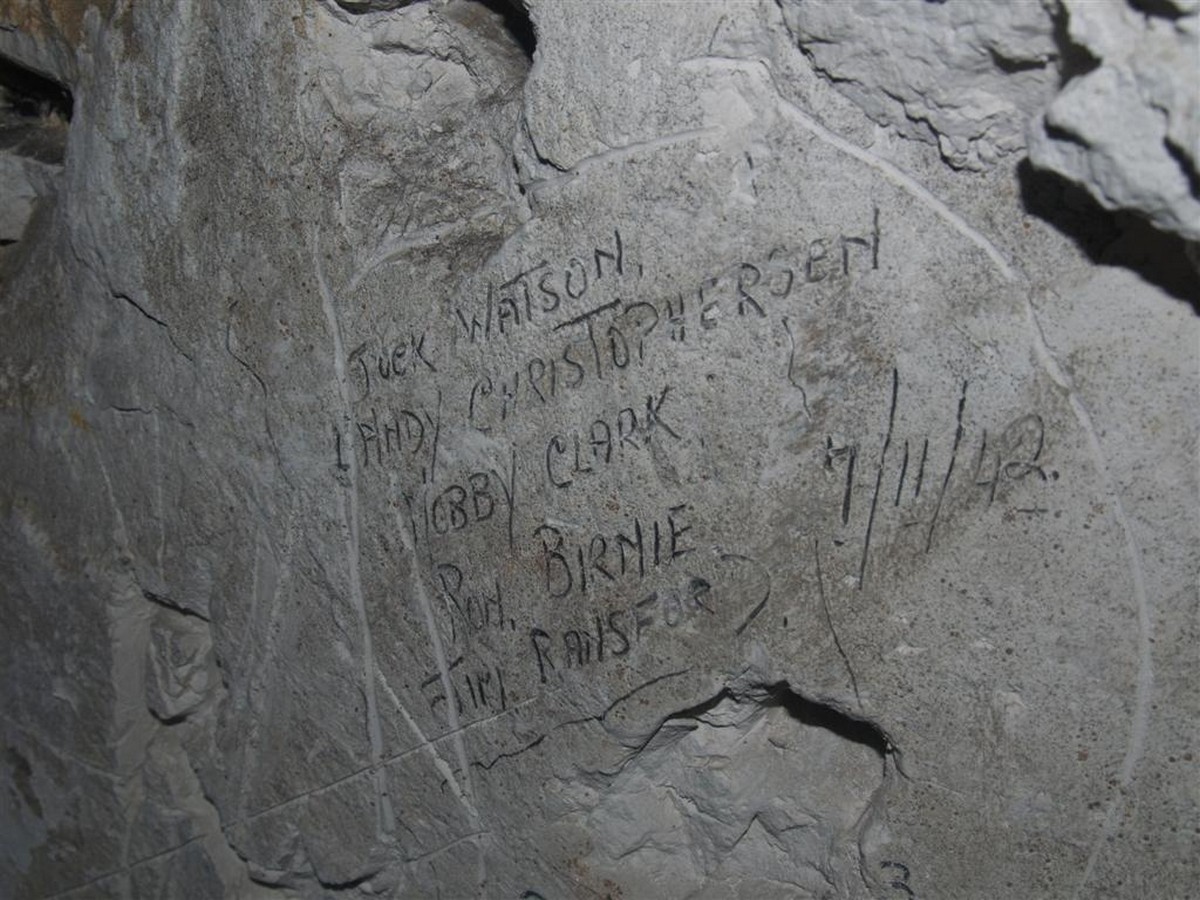 Jack WATSON.
LANDY CHRISTOPHERSEN
NOBBY CLARK
RON. BIRNIE
JIM. RANSFOR
7/11/42.
3